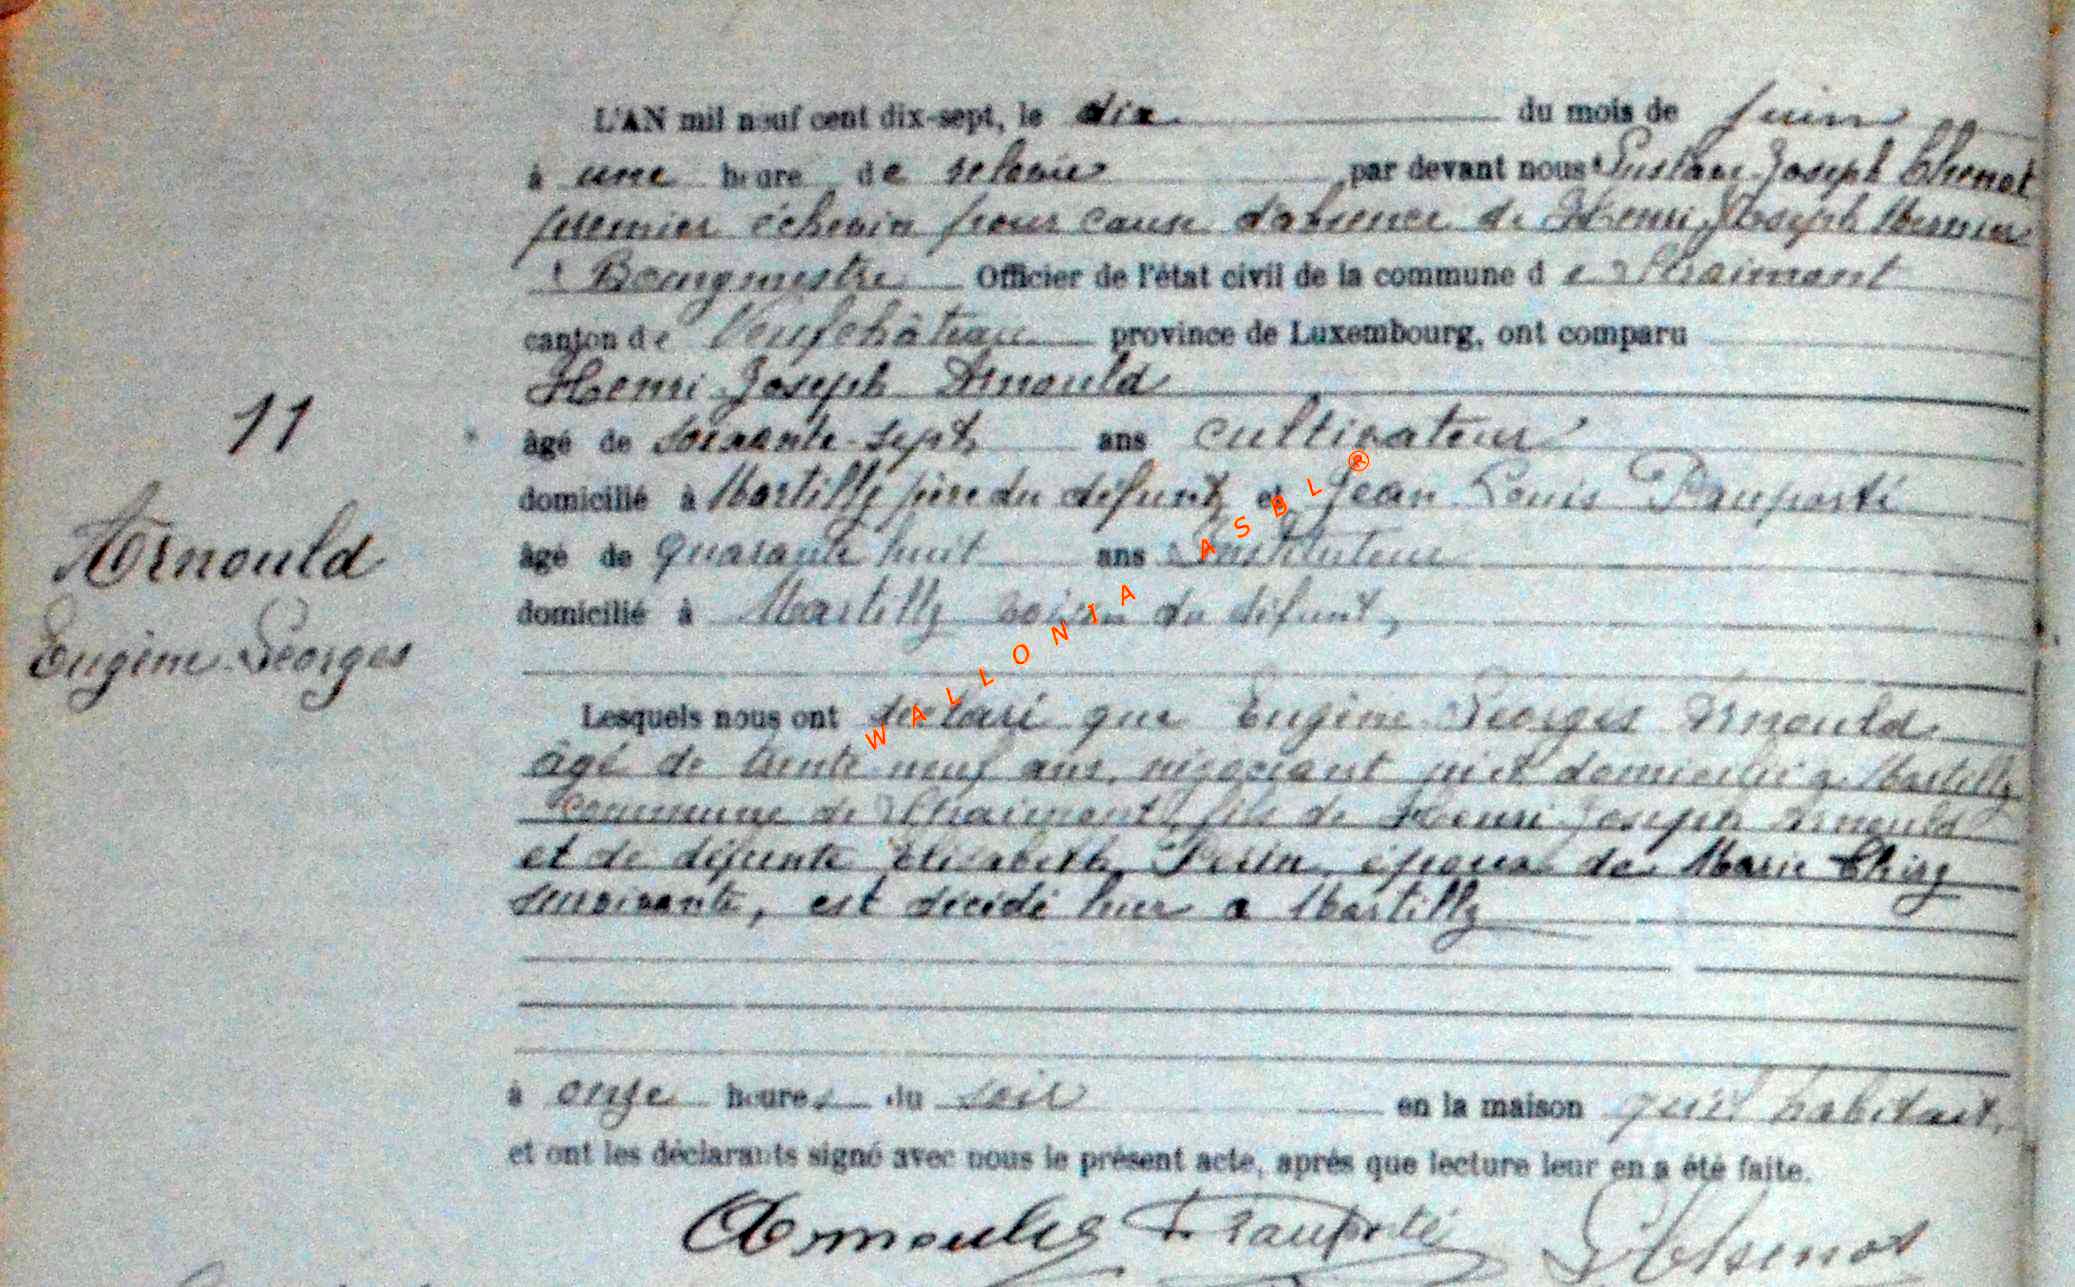 L'AN mil neuf cent dix-sept, le dix du mois de juin
à une heure de relevée par devant nous Gustave Joseph Thenot
premier échevin pour cause d'absence de Henri Joseph Mernier
Bourgmestre Officier de l'état civil de la commune de Straimont
canton de Neufchâteau province de Luxembourg, ont comparu
Henri Joseph Arnould
11
âgé de soixante-sept ans cultivateur
domicilié à Martilly père du défunt et Jean Louis Pauporté
Arnould
âgé de quarante huit ans Instituteur
domicilié à Martilly voisin du défunt,
Eugène Georges
Lesquels nous ont déclaré que Eugène Georges Arnould
âgé de trente neuf ans, négociant né et domicilié à Martilly
commune de Straimont fils de Henri Joseph Arnould
et de défunte Elisabeth Perin, époux de Marie Thiry
survivante, est décédé hier à Martilly
à onze heures du soir en la maison qu'il habitait,
et ont les déclarants signé avec nous le présent acte, après que lecture leur en a été faite.
Arnould Pauporté
WALLONIA ASBL ®